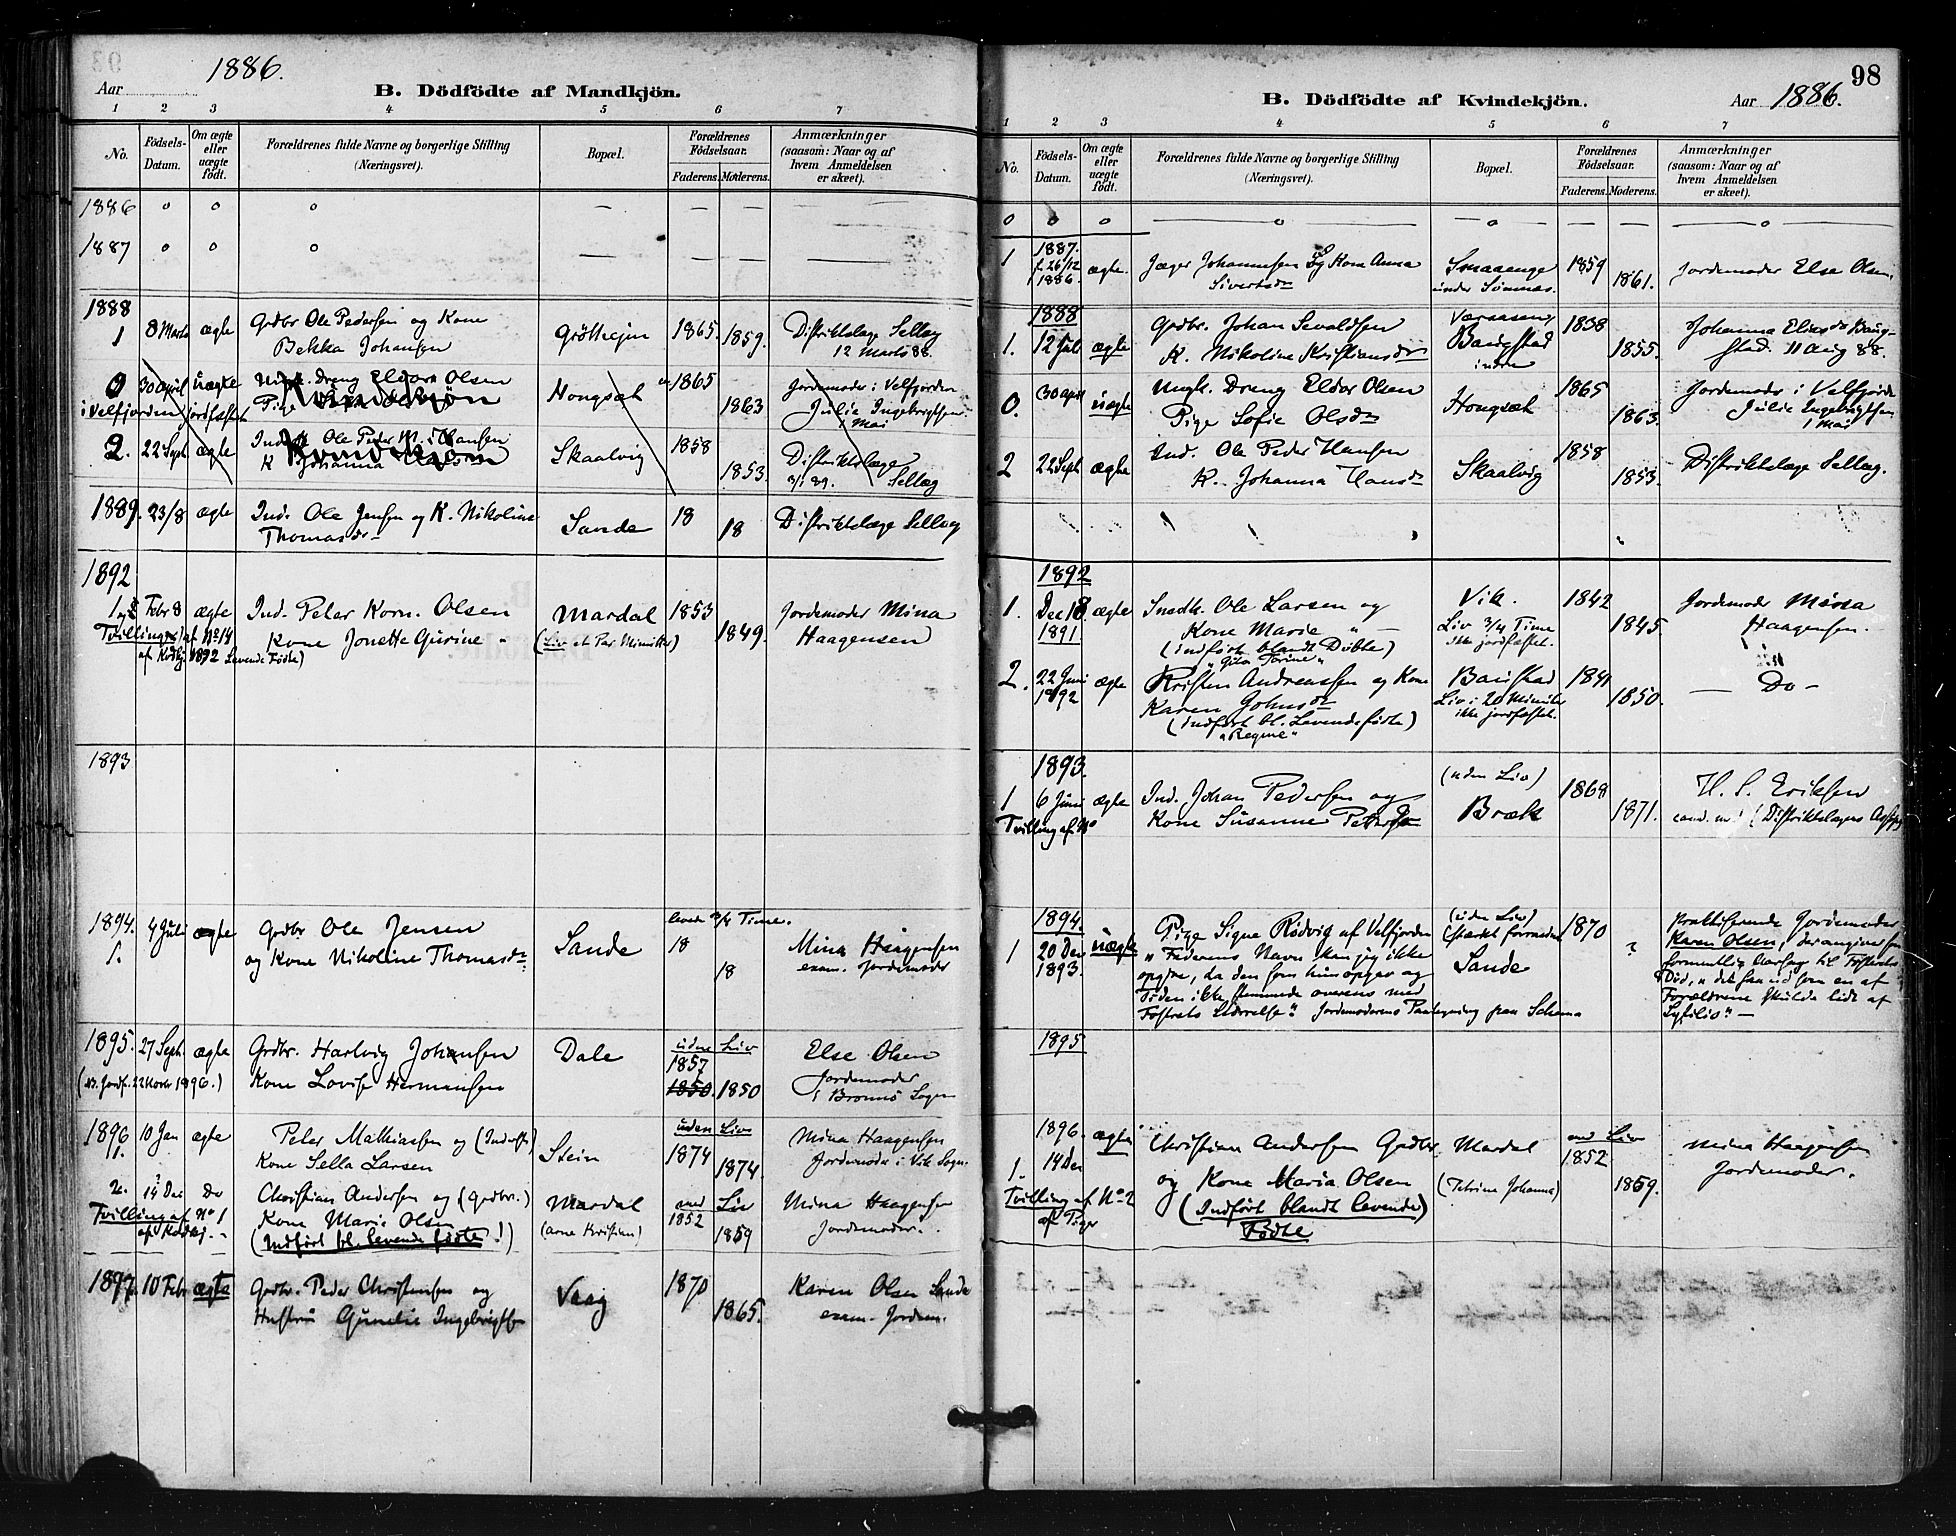 Aar 1886.
B. Dödfödte af Mandkjön.
1 2 3 4 5 6 7
No. Födsels-Datum. Om ægte eller uægte födt. Forældrenes fulde Navne og borgerlige Stilling (Næringsvei). Bopæl. Forældrenes Födselsaar. Faderens. Moderens. Anmærkninger (saasom: Naar og af hvem Anmeldelsen er skeet).
1886 o o o — — — —
1887 o o o — — — —
1888
1 8 Marts ægte Grdbr Ole Pedersen og Kone 1865 Distriktslæge Sellæg
Bekka Johansen 1859. 12 Marts 88.
0 30 april uægte Dreng Eldor Olsen Hongsæt 1865 Jordemoder i Velfjorden
i Velfjorden jordfæstet Pige Kvindekjön 1863 Julie Ingebrigtsen
1 Mai
2. 22 Sept ægte Ind. Ole Peder Hansen Skaalvig 1858 Distriktslæge
K Johanna Kvindekjön 1853. 3/1 89. Sellæg
1889. 23/8 ægte Ind. Ole Jensen og K. Nikoline Sande 18 Distriktslæge Sellæg
Thomasdr 18
1892
Febr 8 ægte Ind. Peter Korn. Olsen Mardal 1853 Jordemoder Mina
Tvilling af No 14 Kone Jonette Gurine " (Liv et Par Minutter) 1849. Haagensen
af Kvkj. 1892 Levende Fødte)
1893
1894. 4 Juli ægte Grdbr Ole Jensen Sande levede 3/4 Time.
1. og Kone Nikoline Thomasdr 18 Mina Haagensen
18 exam. Jordemoder
1895. 27 Sept. ægte Grdbr. Hartvig Johansen Dale uden Liv Else Olsen
1896.) Kone Lovise Hermansen 1857 Jordemoder
1850. 1850 i Brønnø Sogn
1896 10 Jan ægte Peter Mathiassen og (Inderst) Stein uden Liv Mina Haagensen
1. Kone Sella Larsen 1874 1874. Jordemoder i Vik Sogn.
2. 14 Dec Do Christian Andersen og (Grdbr.) Mardal med Liv Mina Haagensen
Tvilling af No 1 Kone Marie Olsen (Arne Kristian) 1852 Jordemoder.
(Indført bl. levende fødte!) 1859
1897. 10 Febr ægte Grdbr. Peder Christensen og Vaag 1870 Karen Olsen Sande
Hustru Gunelie Ingebrigtsen 1865. exam. Jordem.
98
B. Dödfödte af Kvindekjön. Aar 1886.
1 2 3 4 5 6 7
No. Födsels-Datum. Om ægte eller uægte födt. Forældrenes fulde Navne og borgerlige Stilling (Næringsvei). Bopæl. Forældrenes Födselsaar. Faderens. Moderens. Anmærkninger (saasom: Naar og af hvem Anmeldelsen er skeet).
o o o — o — — o — — o —
1887.
1 f. 26/12 ægte. Jæger Johannesen og Kone Anna Smaaenge 1859 Jordemoder Else Olsen.
1886. Sivertsdr under Sømnæs. 1861.
1888
1. 12 Juli ægte Grdbr. Johan Sevaldsen 1838 Johanna Eliasdr Baug-
K. Nikoline Kristiansdr Baugstad indre 1855. stad. 11 Aug 88.
0. 30 apr uægte Ungk. Dreng Eldor Olsen Hongsæt 1865 Jordemoder i Velfjorden
Pige Sofie Olsdr 1863. Julie Ingebrigtsen
1 Mai
2 22 Sept. ægte Ind. Ole Peder Hansen Skaalvig 1858 Distriktslæge Sellæg.
K. Johanna Hansdr 1853.
1892
1. Dec 18 ægte Ole Larsen og Vik. 1842 Jordemoder
1891 Kone Marie " — Liv 3/4 Time 1845. Haagensen.
(indført blandt Døbte) ikke jordfæstet.
2. 22 Juni ægte Kristen Andreassen og Kone Baustad 1841 — Do —
1892 Karen Johnsdr Liv i 20 Minutter 1850.
(indført bl. Levendefødte) ikke jordfæstet.
"Regine"
1893.
1 6 Juni ægte Ind. Johan Pedersen og (uden Liv) 1868 H. S. Eriksen
Tvilling af No Kone Susanne Bræk 1871. cand. med (Distriktslægens
1894.
1 20 Dec uægte Pige Signe Rødvig af Velfjorden (uden Liv) 1870 Praktiserende Jordemoder
1893. "Faderens Navn kan jeg ikke Sande ? Karen Olsen, der angiver som
opgive, da den som hun opgav og formentlig Aarsag til Fosterets
Tiden ikke stemmede overens med Død, "det saa ud som en af
Fosterets Størrelse". Jordemoderens Paategning paa Schema Forældrene skulde lide af
Syfilis". —
1895
1896. ægte Christian Andersen Grdbr. Mardal med Liv Mina Haagensen
1. 14 Dec og Kone Maria Olsen (Petrine Johanna) 1852 1859. Jordemoder.
Tvilling af No 2 (Indført blandt levende)
Fødte